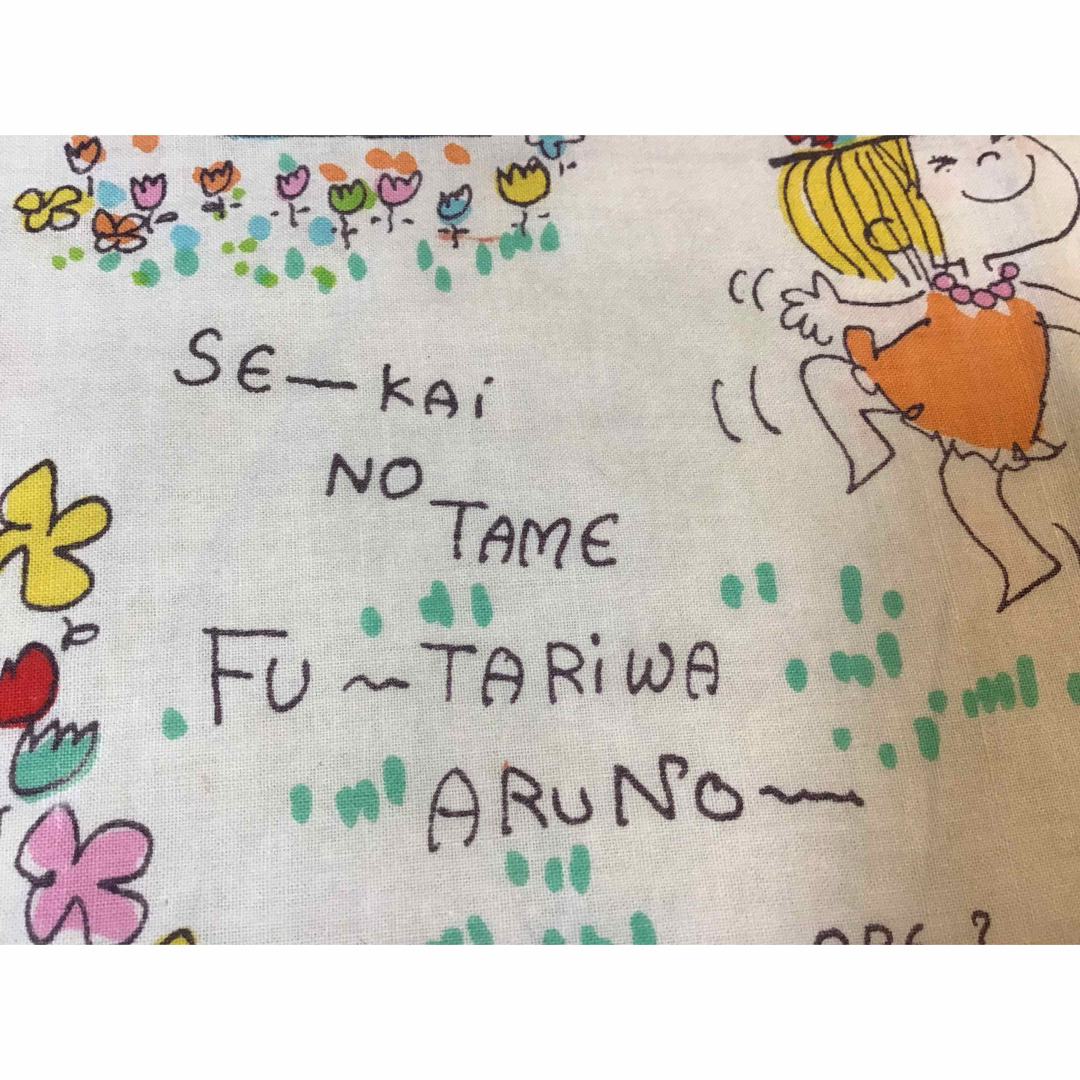 SE—KAi
NO
TAME
FU~TARiWA
ARUNO~